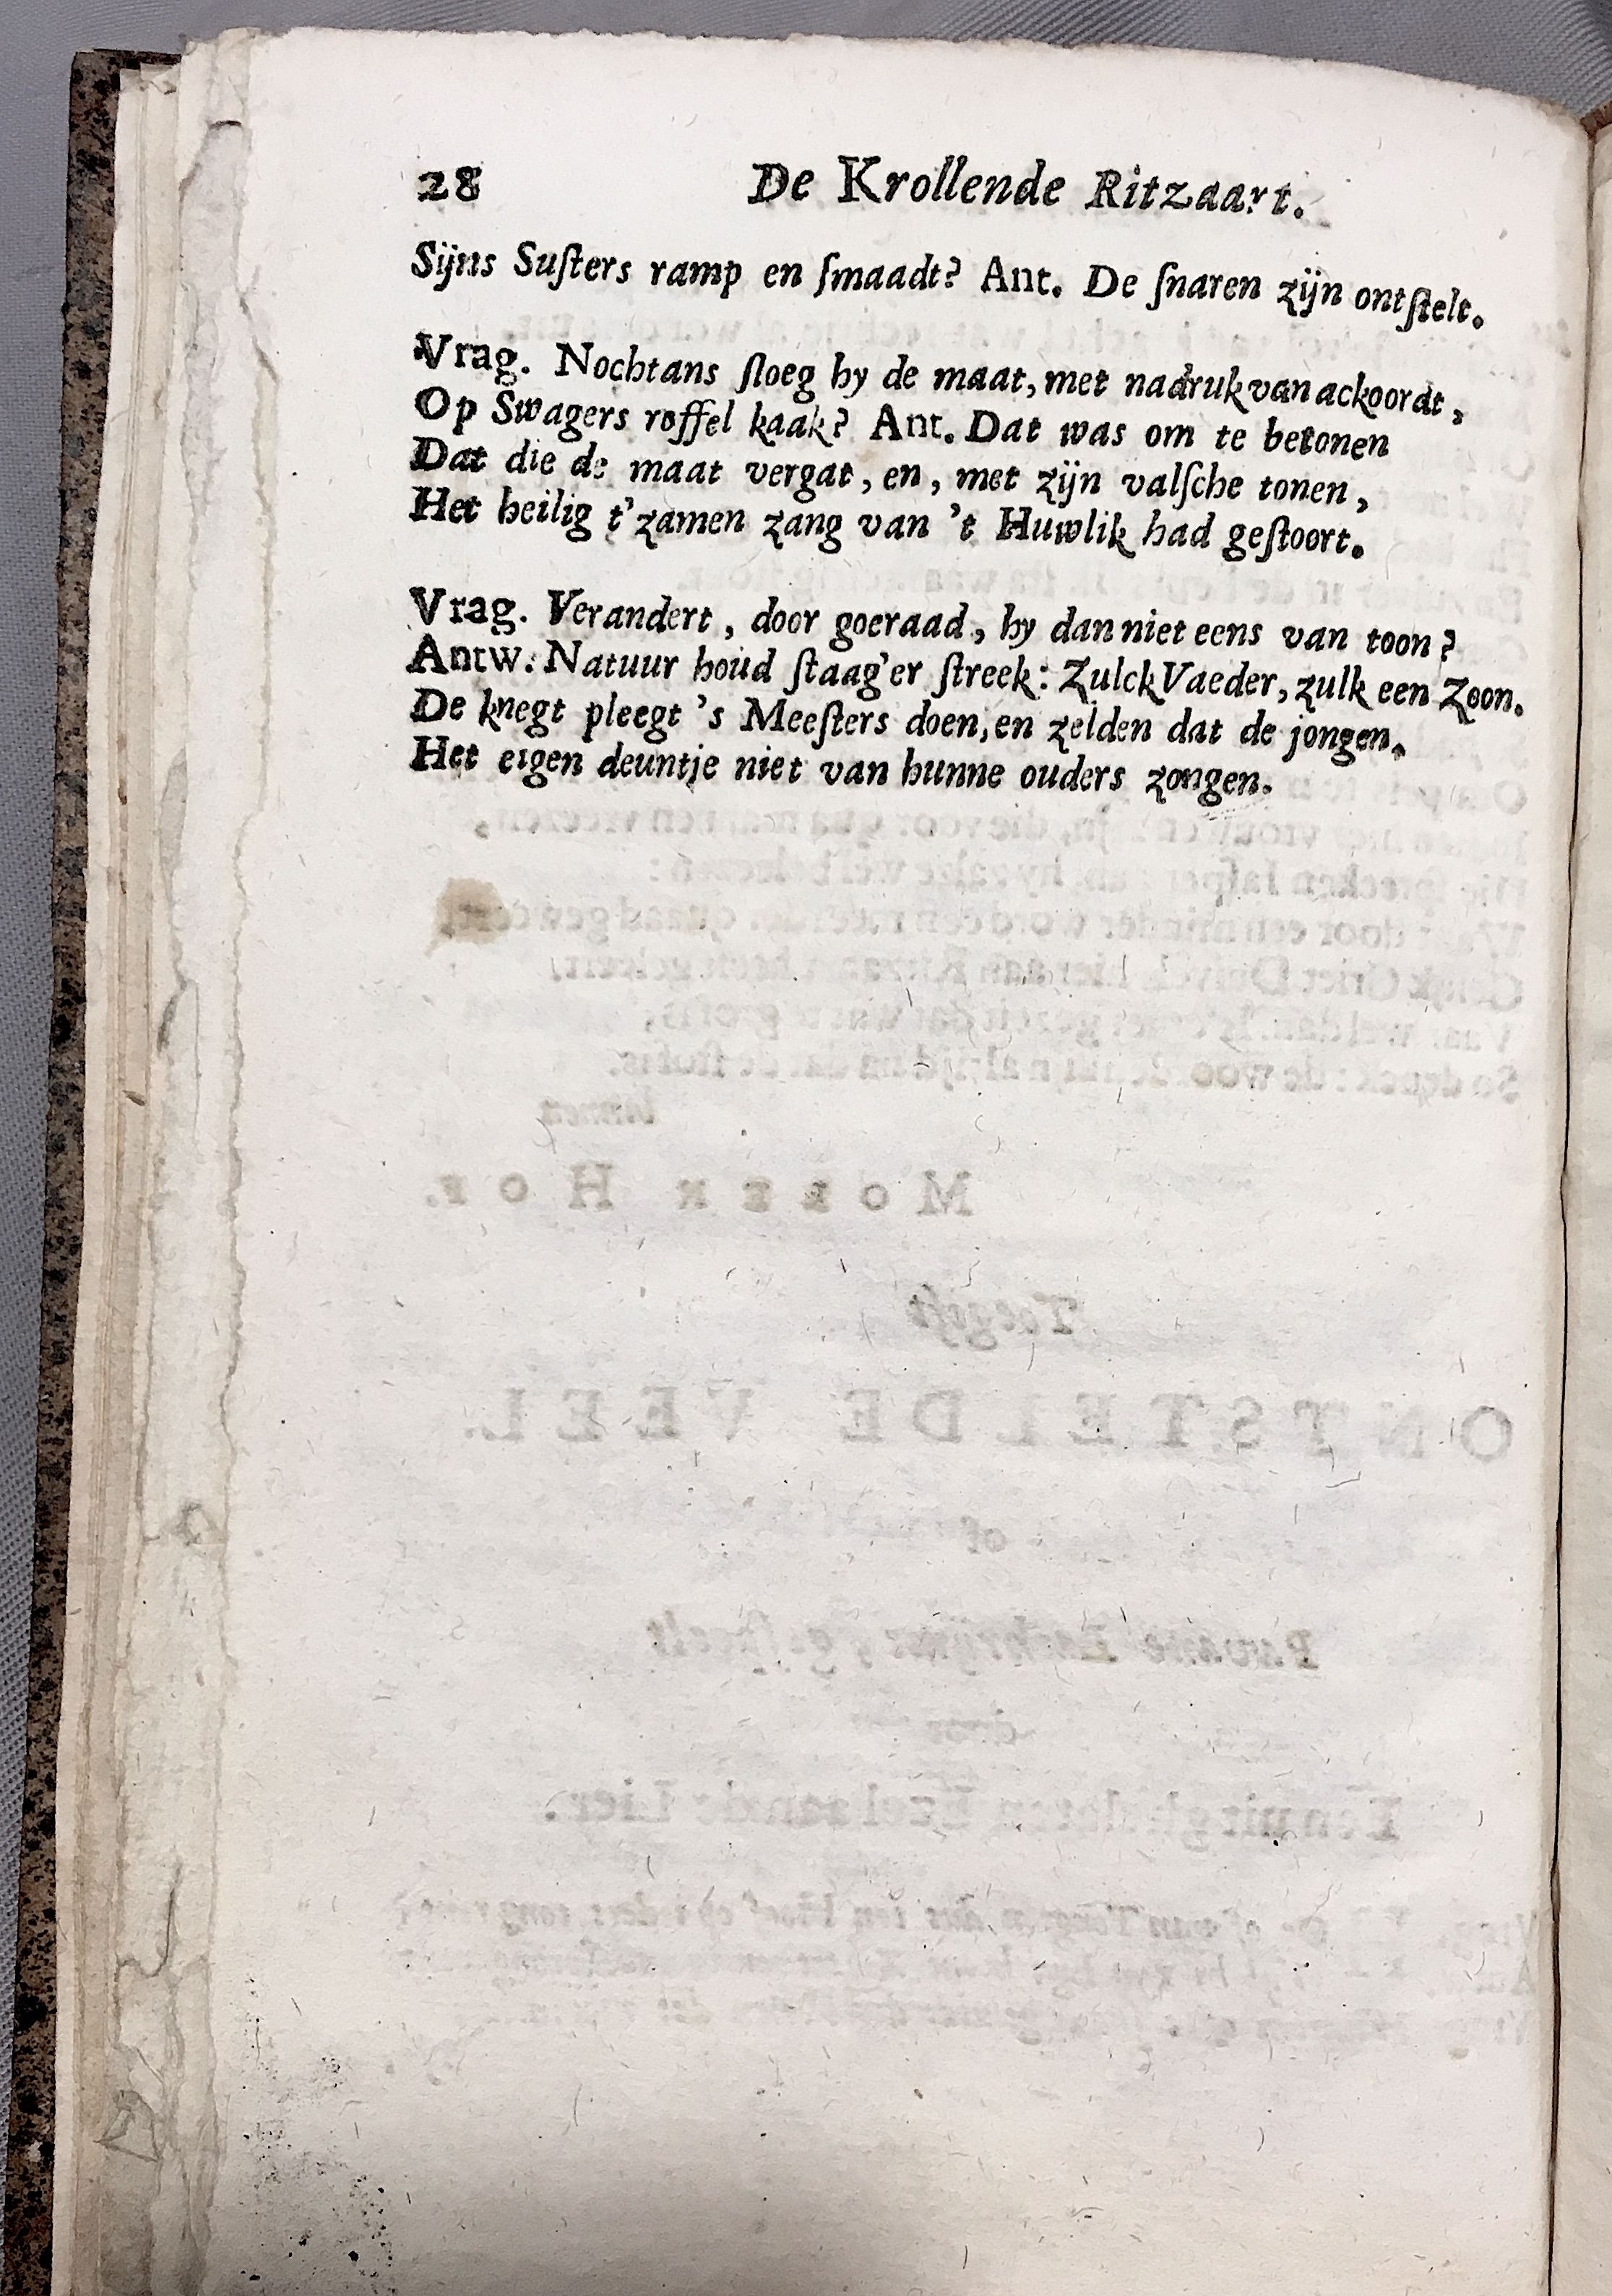 28 De Krollende Ritzaart.
Sijns Suſters ramp en ſmaadt? Ant. De ſnaren zijn ontſtelt.
Vrag. Nochtans ſloeg hy de maat, met nadruk van ackoordt,
Op Swagers roffel kaak? Ant. Dat was om te betonen
Dat die de maat vergat, en, met zijn valſche tonen,
Het heilig t'zamen zang van 't Huwlik had geſtoort.
Vrag. Verandert, door goeraad, hy dan niet eens van toon?
Antw. Natuur houd ſtaag'er ſtreek: Zulck Vaeder, zulk een Zoon.
De knegt pleegt 's Meeſters doen, en zelden dat de jongen,
Het eigen deuntje niet van hunne ouders zongen.